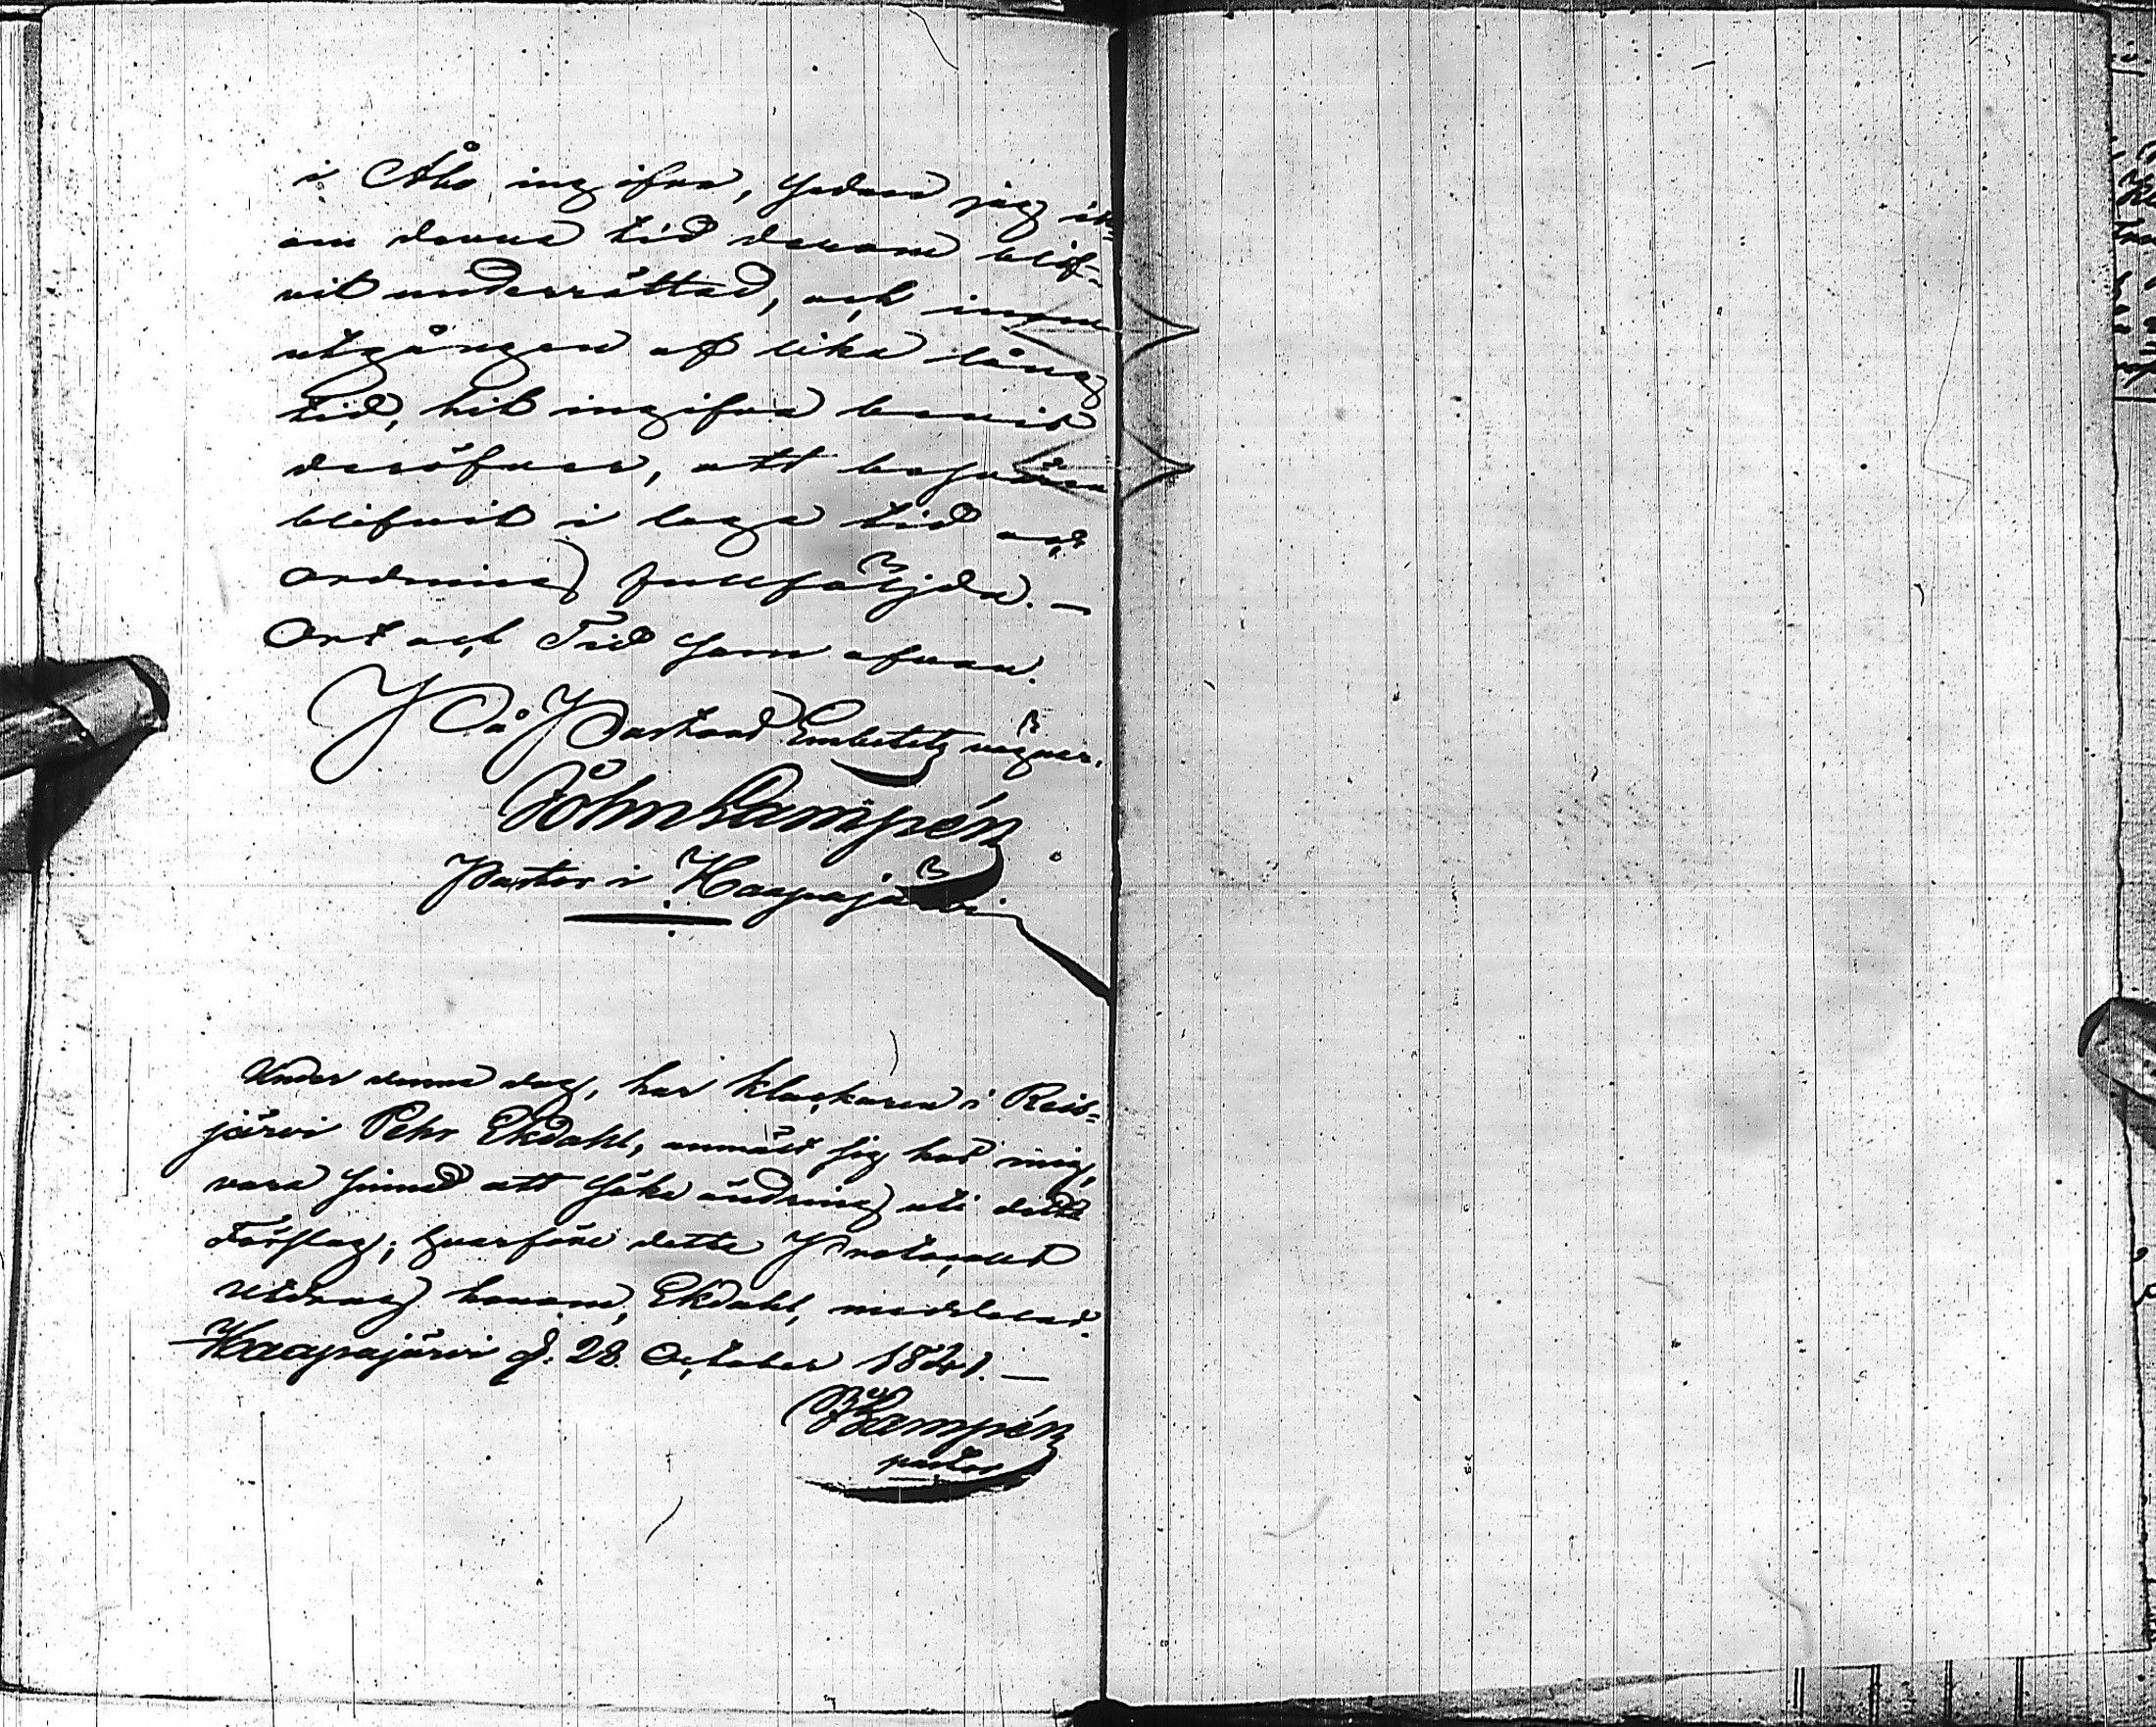 i Åbo ingifva, sedan jag in-
om denna tid derom blif-
vit underrättad, och innom
utgången af lika lång
tid, hit ingifva bevis
deröfver, att besvären
blifvit i laga tid och
ordning fullföljda. —
Ort och Tid som ofvan.
På Pastors Embetets vägnar.
Joh Lampén
Pastor i Haapajärvi
Under denna dag, har Klockaren i Reis-
järvi Pehr Ekdahl, anmält sig hos mig,
vara sinnad att söka ändring uti detta
Förslag; hvarföre detta Protocolls
utdrag honom, Ekdahl, meddelas.
Haapajärvi d. 28. October 1841. —
Lampén
pastor